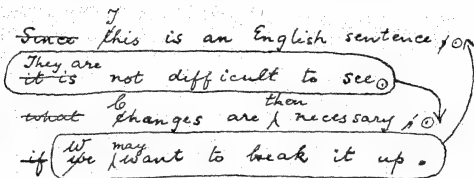 T
Since this is an English sentence,⊙
They are
it is not difficult to see⊙
C then
what changes are ʎ necessary,⊙
W may
if we ʎ want to break it up.